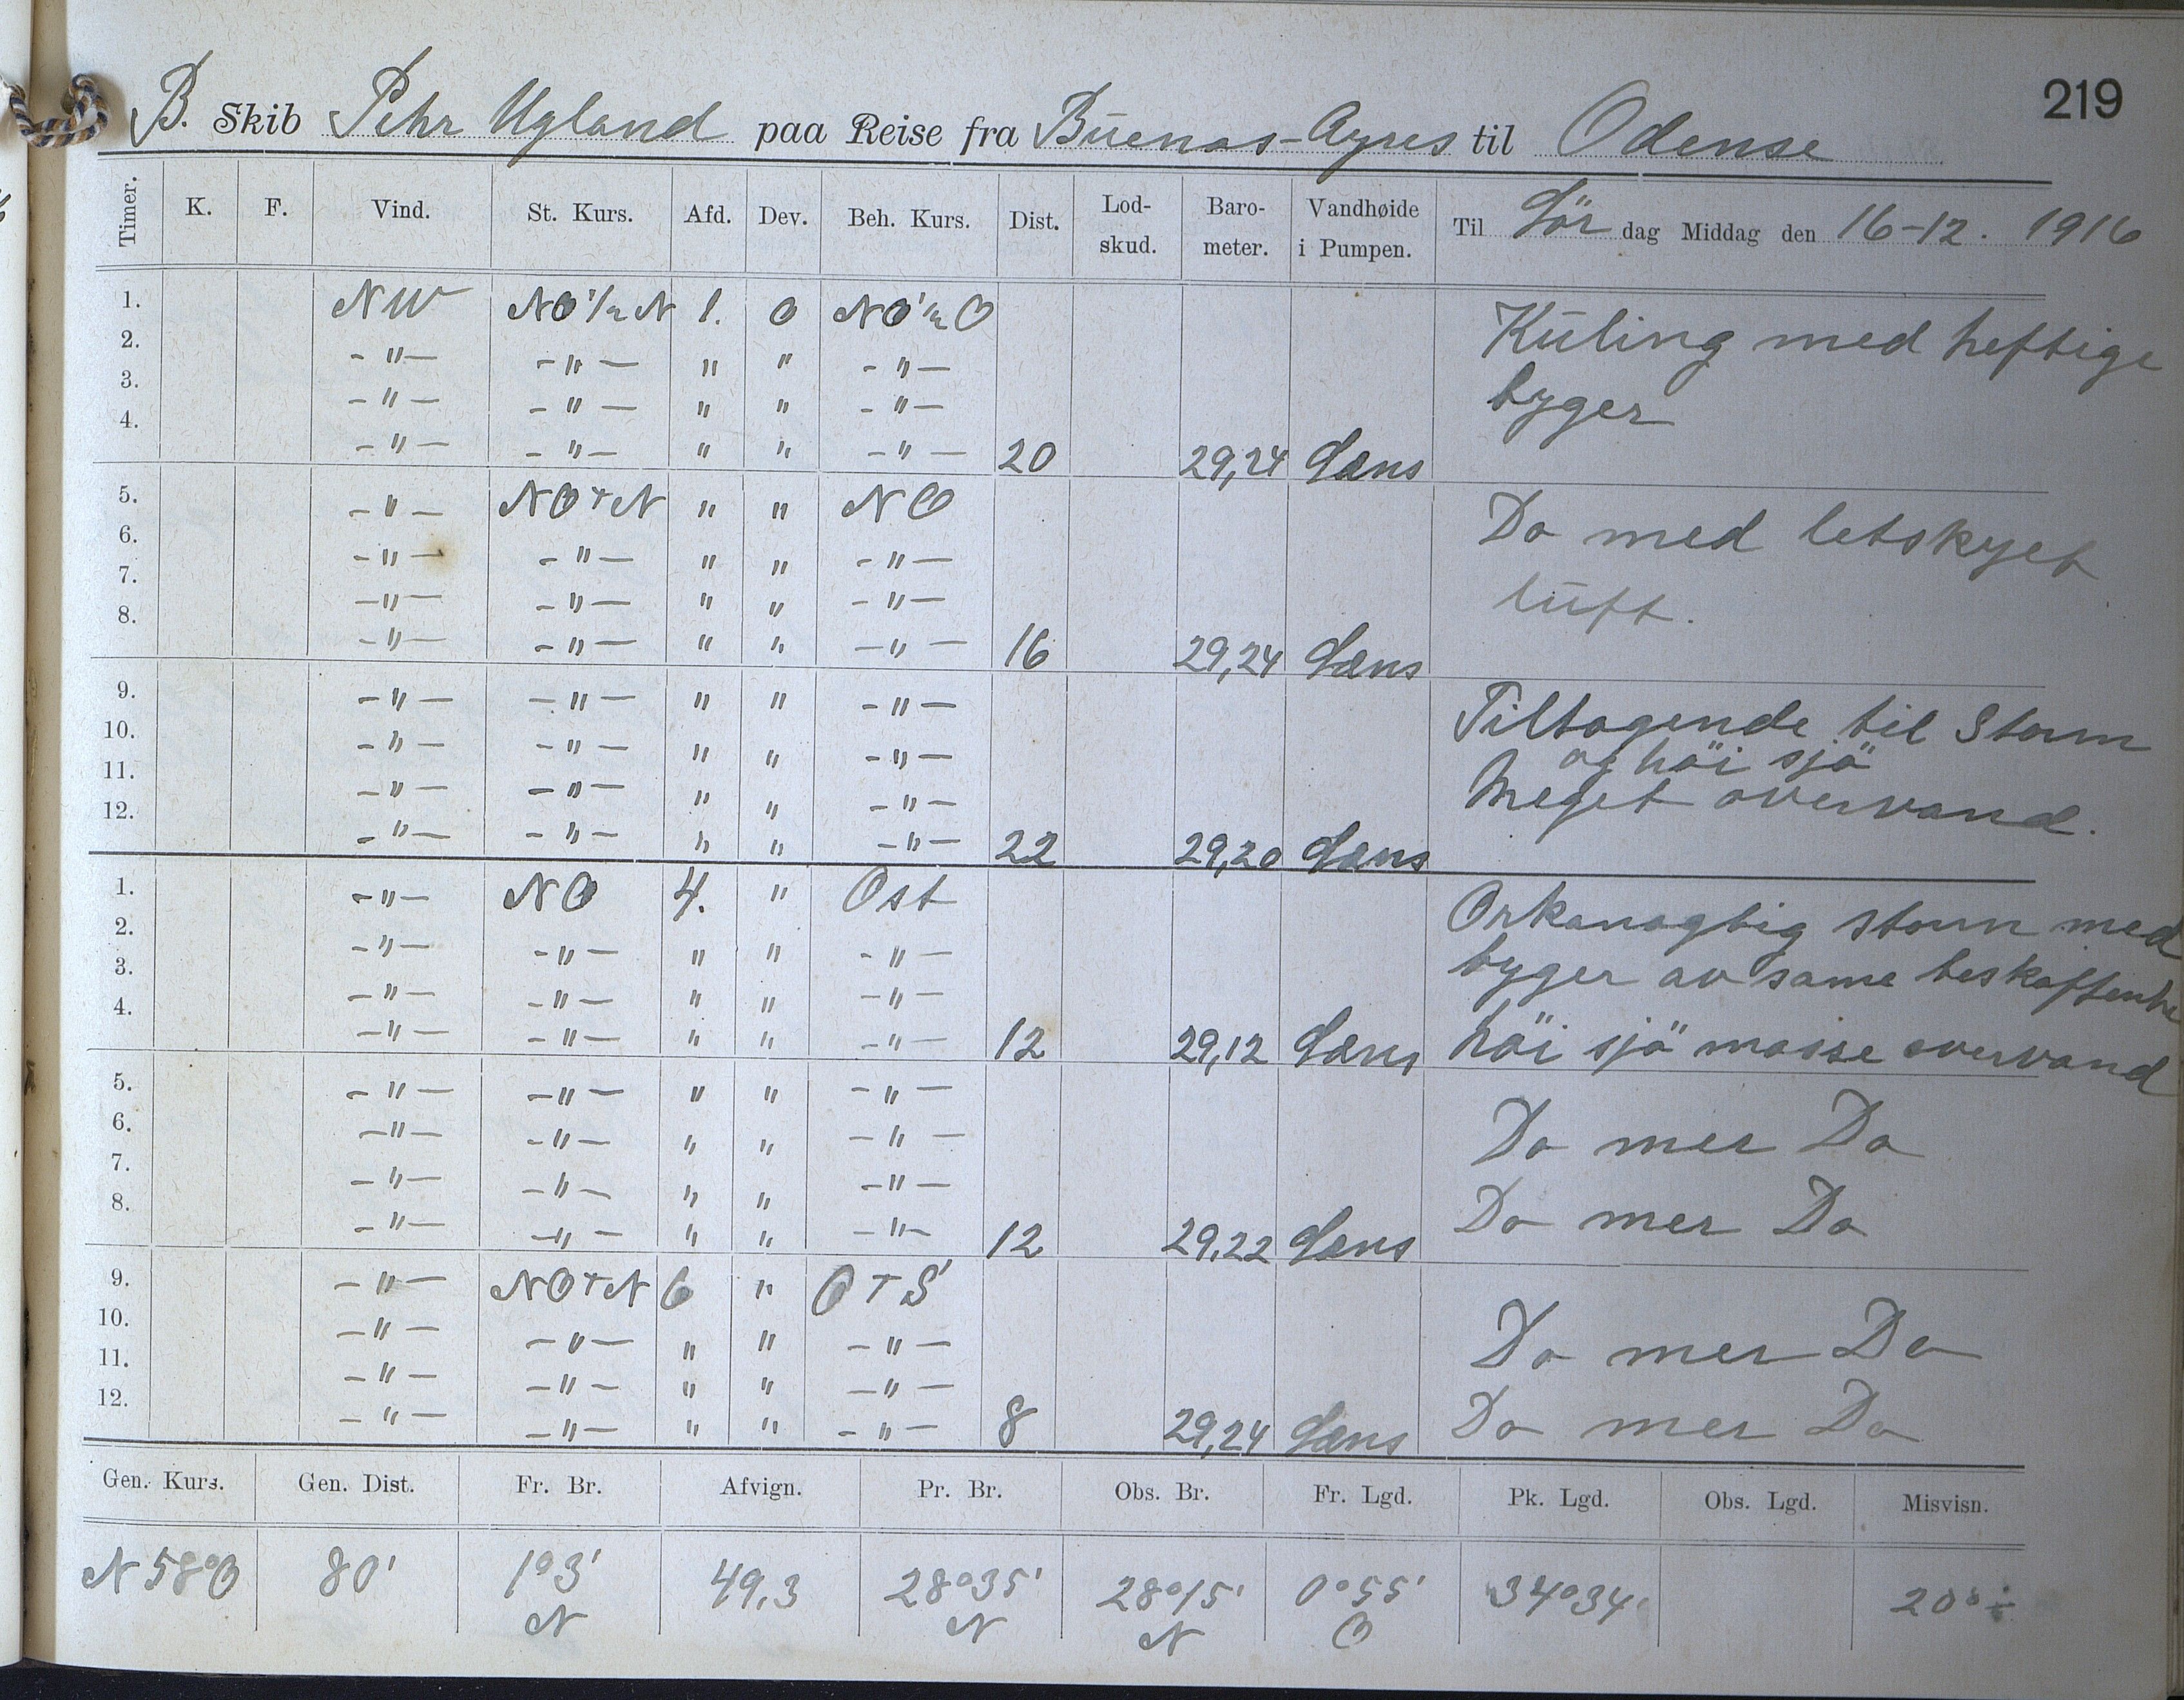 219
B. Skib Pehr Ugland paa Reise fra Buenas-Ayres til Odense
Timer. K. F. Vind. St. Kurs. Afd. Dev. Beh. Kurs. Dist. Lod-skud. Baro-meter. Vandhøide i Pumpen. Til Lör dag Middag den 16-12. 1916
1. NW NO½N 1. 0 NO½O Kūling med heftige
2. -"- -"- " " -"-
3. -"- -"- " " -"- byger
4. -"- -"- " " -"- 20 29,24 Læns
5. -"- NOtN " " NO Do med letskyet
6. -"- -"- " " -"-
7. -"- -"- " " -"- lūft.
8. -"- -"- " " -"- 16 29,24 Læns
9. -"- -"- " " -"- Tiltagende til Storm
10. -"- -"- " " -"- og höi sjö
11. -"- -"- " " -"- Meget overvand.
12. -"- -"- " " -"- 22 29,20 Læns
1. -"- NO 4. " Ost Orkanagtig storm med
2. -"- -"- " " -"- byger av same beskaffenhe
3. -"- -"- " " -"-
4. -"- -"- " " -"- 12 29,12 Læns höi sjö masse overvand
5. -"- -"- " " -"-
6. -"- -"- " " -"- Do mer Do
7. -"- -"- " " -"-
8. -"- -"- " " -"- 12 29,22 Læns Do mer Do
9. -"- NOtN 6 " OTS
10. -"- -"- " " -"- Do mer Do
11. -"- -"- " " -"-
12. -"- -"- " " -"- 8 29,24 Læns Do mer Do
Gen. Kurs. Gen. Dist. Fr. Br. Afvign. Pr. Br. Obs. Br. Fr. Lgd. Pk. Lgd. Obs. Lgd. Misvisn.
N 58°O 80' 1°3' 49,3 28°35' 28°15' 0°55' 34°34' 20° ÷
N N N O